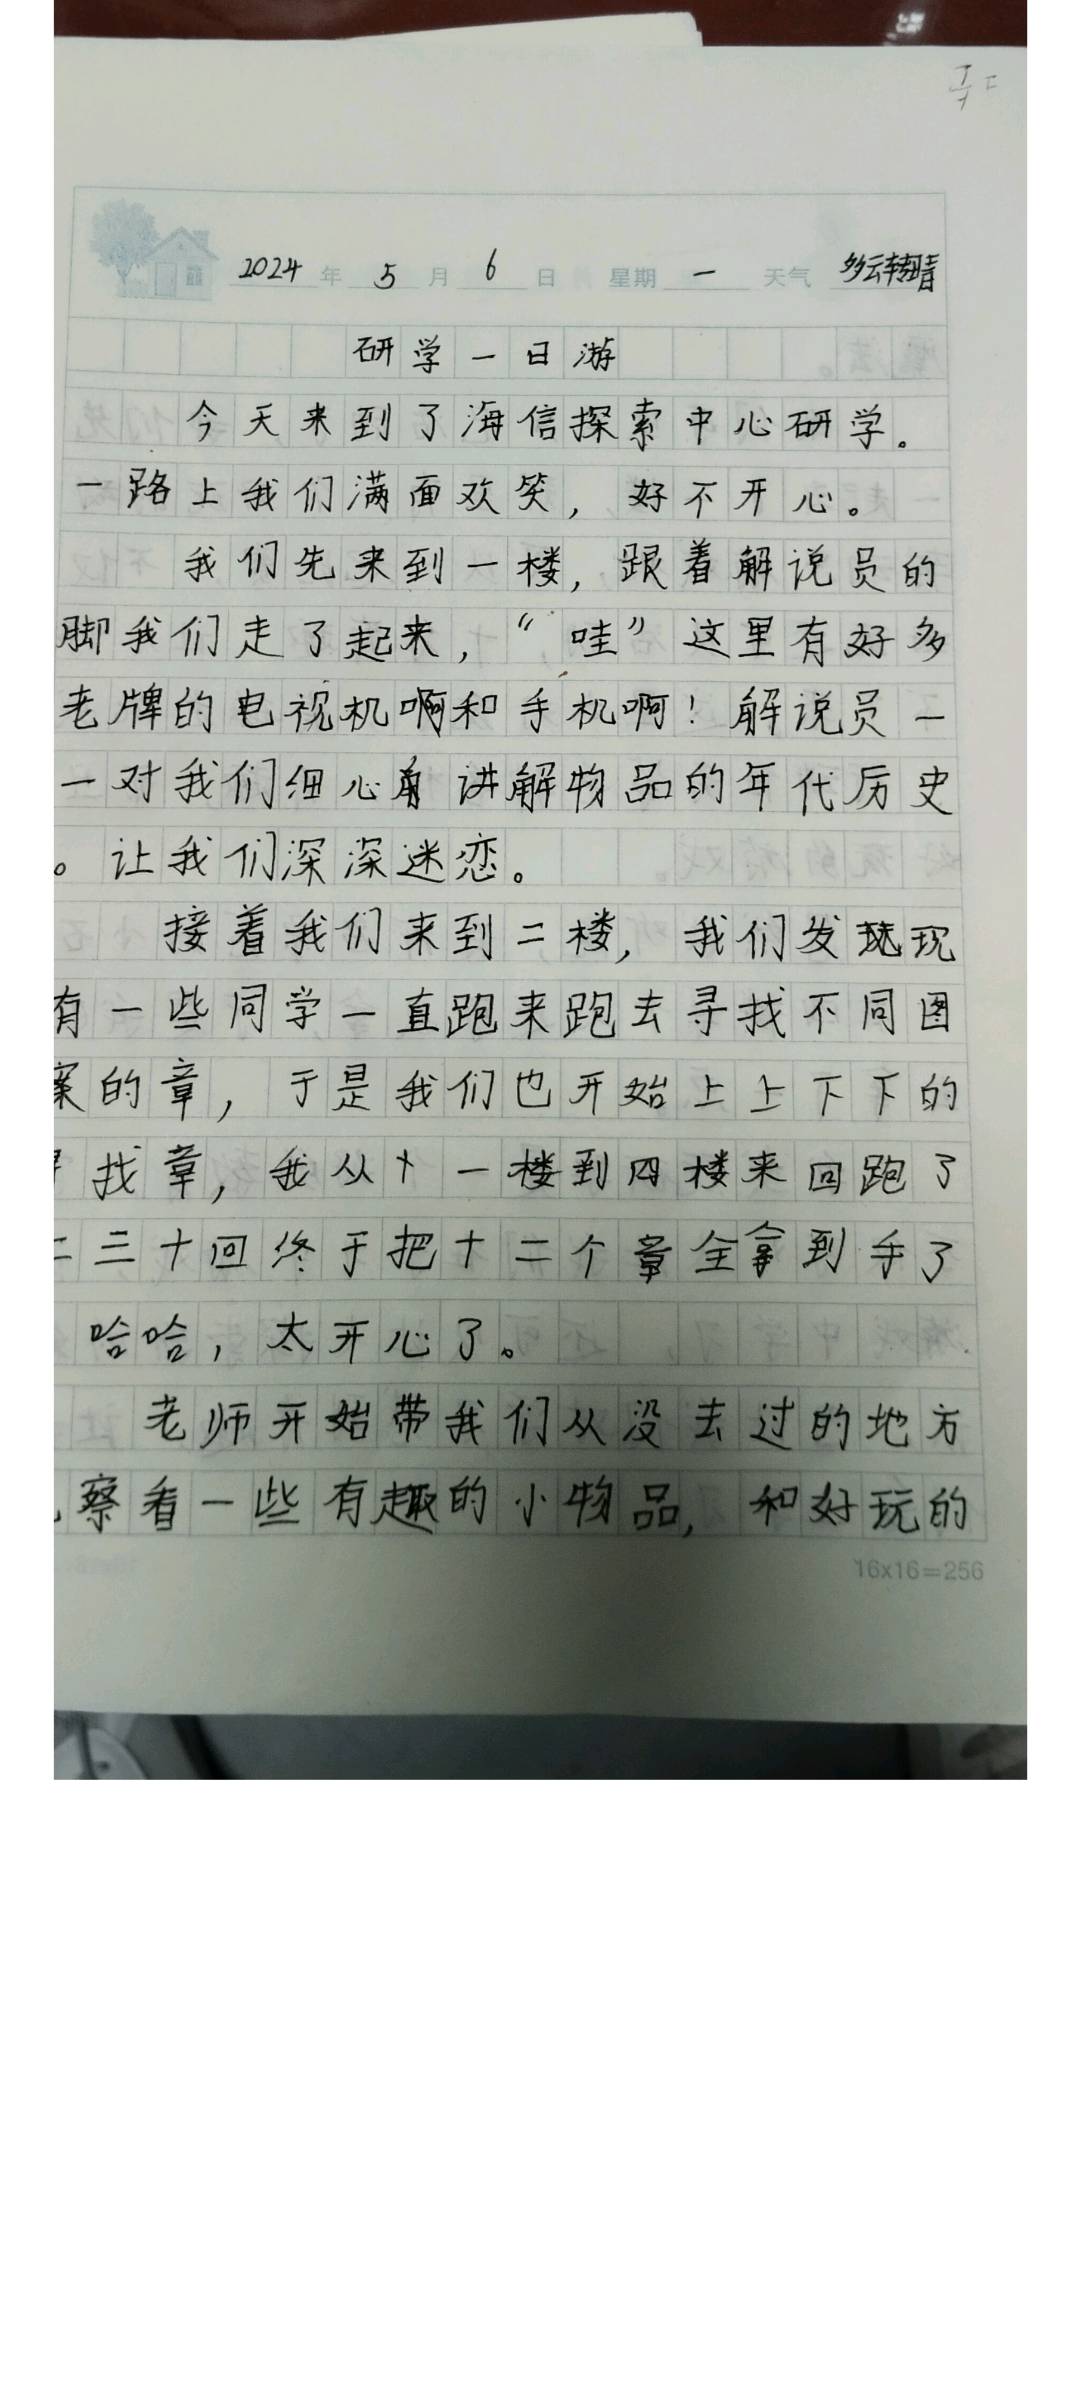 2024年5月6日 星期一 天气 多云转晴
研学一日游
今天来到了海信探索中心研学。
一路上我们满面欢笑，好不开心。
我们先来到一楼，跟着解说员的
脚我们走了起来，“哇”这里有好多
老牌的电视机啊和手机啊！解说员一
一对我们细心 讲解物品的年代历史
。让我们深深迷恋。
接着我们来到二楼，我们发现
有一些同学一直跑来跑去寻找不同图
案的章，于是我们也开始上上下下的
找章，我从十一楼到四楼来回跑了
二三十回终于把十二个章全拿到手了
哈哈，太开心了。
老师开始带我们从没去过的地方
察看一些有趣的小物品，和好玩的
16x16=256